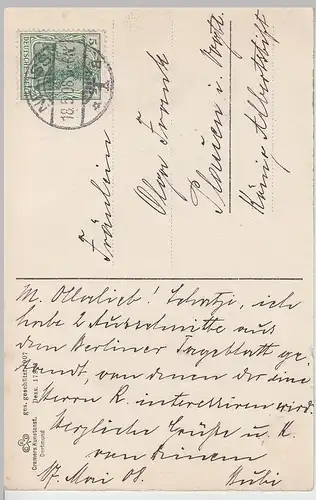 5
DEUTSCHES
18.5.08
Fräulein
Olga Frank
Plauen i. Vogtl.
König Albertstift
M. Allerlieb! Schatzi, ich
habe 2 Ausschnitte aus
dem Berliner Tageblatt ge
sandt, von denen der eine
Herrn R. interessiren wird.
Herzliche Grüße u. K.
von Deinem
17. Mai 08. Bubi
ges. geschützt 1907
Dess. 17
Cramers Kunstanst.
Dortmund